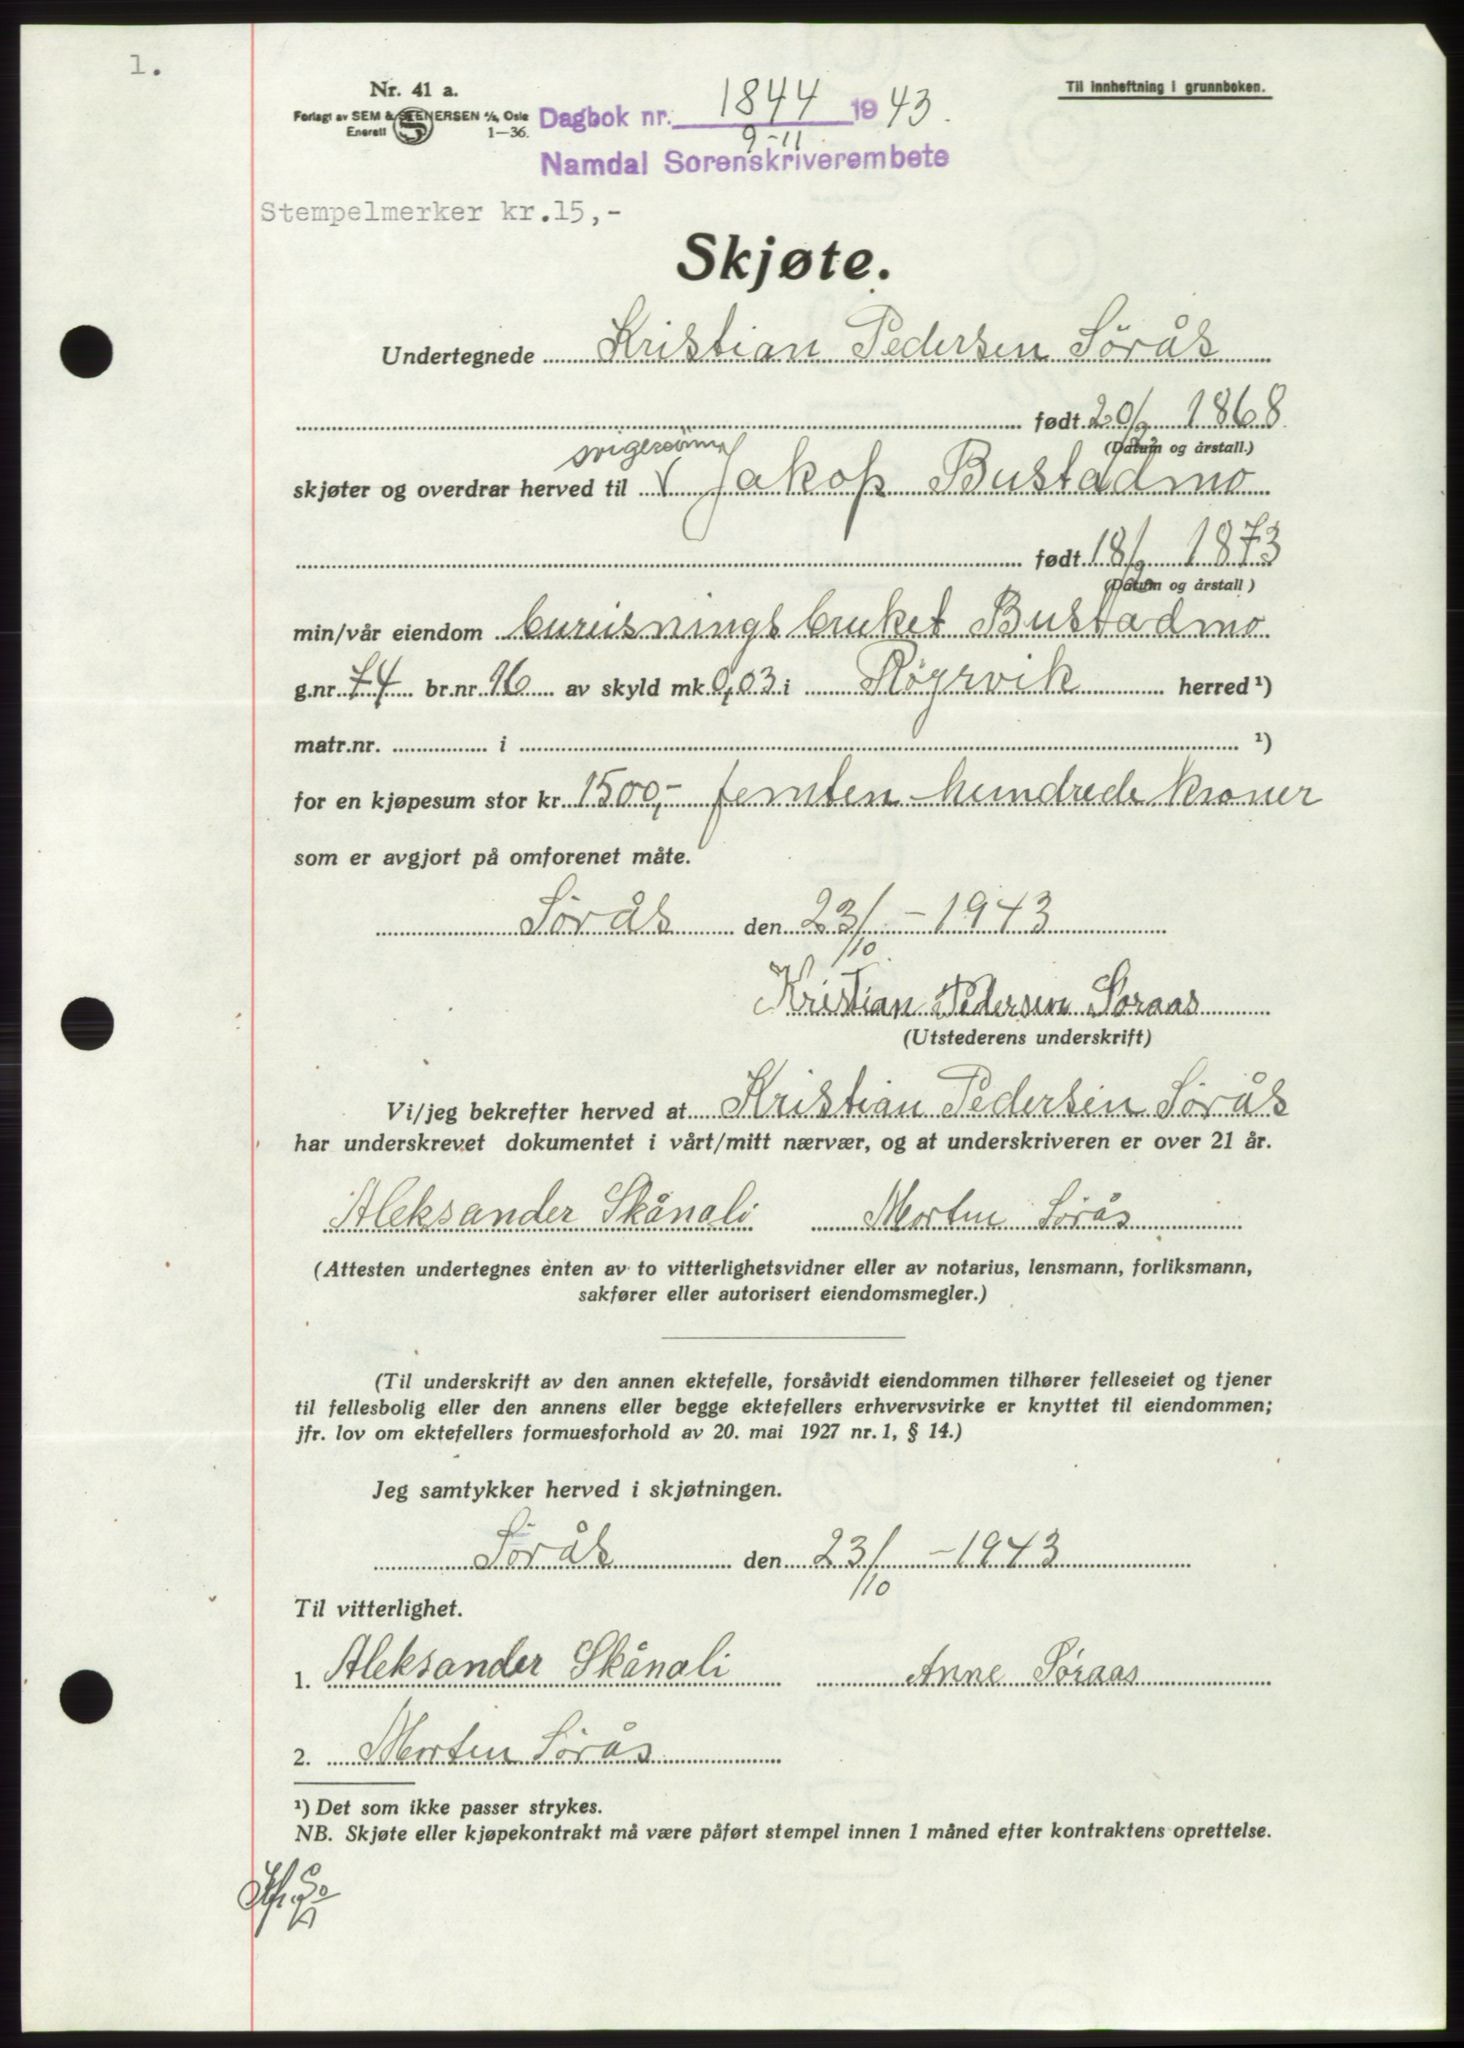 1.
Nr. 41 a.
Til innheftning i grunnboken.
Forlagt av SEM & STENERSEN A/S, Oslo
Enerett 1—36.
Dagbok nr. 1844 1943.
9-11
Namdal Sorenskriverembete
Stempelmerker kr.15,-
Skjøte.
Undertegnede Kristian Pedersen Sörås
født 20/9 1868
(Datum og årstall.)
svigersönn
skjøter og overdrar herved til V Jakob Bustadmo
født 18/9 1873
(Datum og årstall)
min/vår eiendom bureisningsbruket Bustadmo
g.nr. 74 br.nr. 16 av skyld mk. 0,03 i Röyrvik herred ¹)
matr.nr. i ¹)
for en kjøpesum stor kr. 1500,- femten hundrede kroner
som er avgjort på omforenet måte.
Sörås den 23/10 - 1943
Kristian Pedersen Soraas
(Utstederens underskrift)
Vi/jeg bekrefter herved at Kristian Pedersen Sörås
har underskrevet dokumentet i vårt/mitt nærvær, og at underskriveren er over 21 år.
Aleksander Skånali Morten Sörås
(Attesten undertegnes enten av to vitterlighetsvidner eller av notarius, lensmann, forliksmann,
sakfører eller autorisert eiendomsmegler.)
(Til underskrift av den annen ektefelle, forsåvidt eiendommen tilhører felleseiet og tjener
til fellesbolig eller den annens eller begge ektefellers erhvervsvirke er knyttet til eiendommen;
jfr. lov om ektefellers formuesforhold av 20. mai 1927 nr. 1, § 14.)
Jeg samtykker herved i skjøtningen.
Sörås den 23/10 - 1943
Til vitterlighet.
1. Aleksander Skånali Anne Søraas
2. Morten Sörås
¹) Det som ikke passer strykes.
NB. Skjøte eller kjøpekontrakt må være påført stempel innen 1 måned efter kontraktens oprettelse.